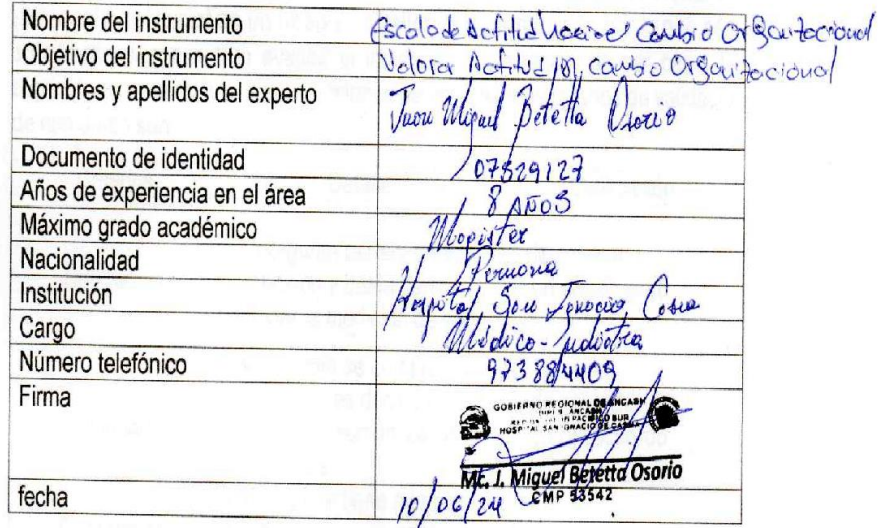 Nombre del instrumento Escala de Actitud hacia el Cambio Organizacional
Objetivo del instrumento Valorar Actitud en cambio Organizacional
Nombres y apellidos del experto Juan Miguel Betetta Osorio
Documento de identidad 07829127
Años de experiencia en el área 8 AÑOS
Máximo grado académico Magister
Nacionalidad Peruana
Institución Hospital San Ignacio Casma
Cargo Médico - Pediatra
Número telefónico 973884409
Firma
GOBIERNO REGIONAL DE ANCASH
PACIFICO SUR
HOSPITAL SAN IGNACIO DE CASMA
Mc. J. Miguel Betetta Osorio
CMP 53542
fecha 10/06/24